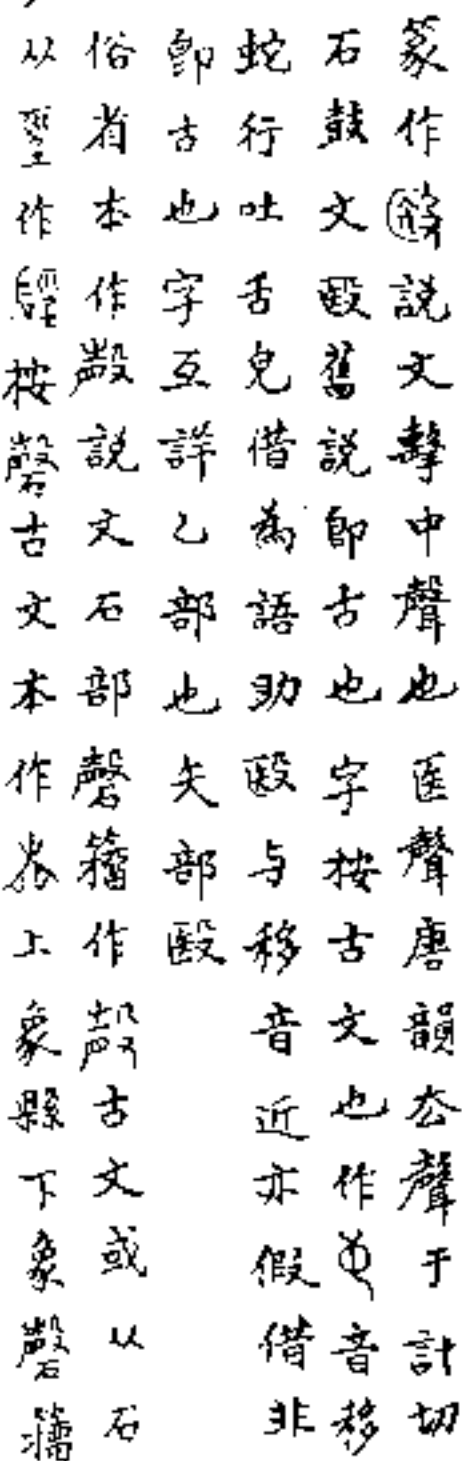 篆作説文擊中聲也医聲唐韻去聲于計切
石鼓文殹舊説即古也字按古文也作音移
蛇行吐舌皃借為語助殹与移音近亦假借非
即古也字互詳乙部也矢部毉
俗省本作殸説文石部磬籀作殸古文或从石
从巠作硜按磬古文本作上象縣下象磬籀